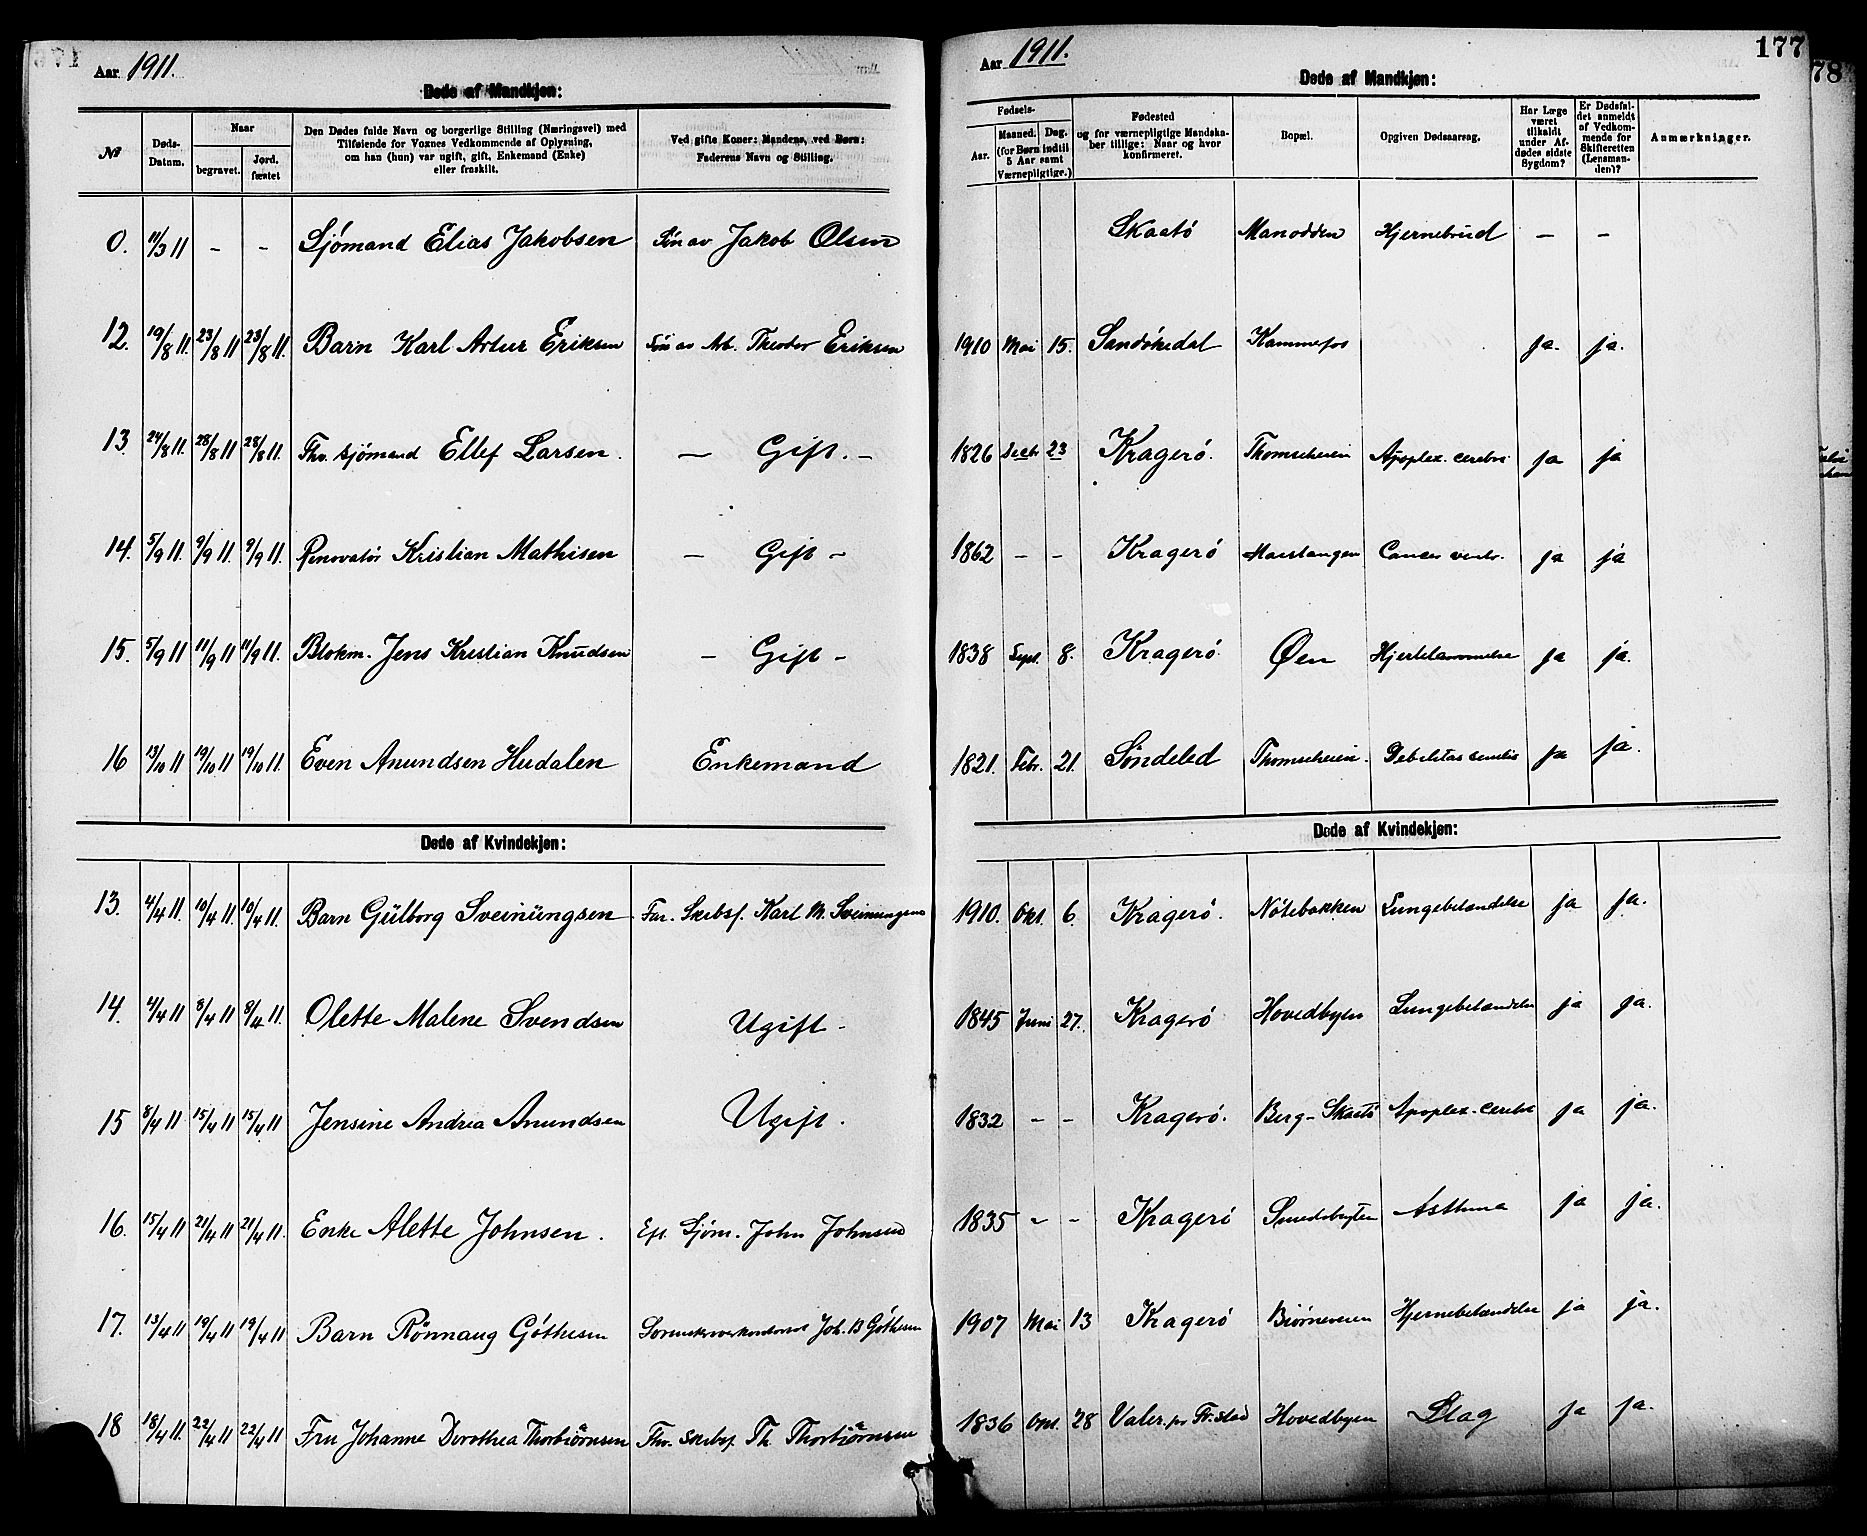 Aar 1911.
Døde af Mandkjøn:
№
Døds-Datum.
Naar
begravet.
Jord. fæstet
Den Dødes fulde Navn og borgerlige Stilling (Næringsvei) med
Tilføiende for Voxnes Vedkommende af Oplysning,
om han (hun) var ugift, gift, Enkemand (Enke)
eller fraskilt.
Ved gifte Koner: Mandens, ved Børn:
Faderens Navn og Stilling.
0. 11/3 11 - - Sjømand Elias Jakobsen Søn av Jakob Olsen
12. 19/8 11. 23/8 11 23/8 11. Barn Karl Artur Eriksen Søn av Arb. Theodor Eriksen
13 24/8 11. 28/8 11 28/8 11. Fhv. sjømand Ellef Larsen. — Gift. –
14. 5/9 11. 9/9 11. 9/9 11. Renovatør Kristian Mathisen – Gift –
15. 5/9 11 11/9 11 11/9 11. Blokm. Jens Kristian Knudsen – Gift –
16 13/10 11 19/10 11 19/10 11. Even Anundsen Heidalen Enkemand
Døde af Kvindekjøn:
13. 4/4 11. 10/4 11. 10/4 11. Barn Gülborg Sveinüngsen Far. Skibsf. Karl M. Sveinungsen
14. 4/4 11. 8/4 11 8/4 11. Olette Malene Svendsen Ugift –
15 8/4 11 15/4 11 15/4 11 Jensine Andrea Anundsen Ugift.
16. 15/4 11 21/4 11 21/4 11. Enke Alette Johnsen. Eft. Sjøm. John Johnsen
17. 13/4 11 19/4 11 19/4 11 Barn Rönnaug Göthesen Joh. B Göthesen
18 18/4 11. 22/4 11 22/4 11 Fru Johanne Dorothea Thorbiörnsen Fhv. Skibsf. Th. Thorbiörnsen
Aar 1911.
177
78
Døde af Mandkjøn:
Fødsels-
Aar.
Maaned.
Dag.
(for Børn indtil
5 Aar samt
Værnepligtige.)
Fødested
og for værnepligtige Mandska-
ber tillige: Naar og hvor
konfirmeret.
Bopæl.
Opgiven Dødsaarsag.
Har Læge
været
tilkaldt
under Af-
dødes sidste
Sygdom?
Er Dødsfal-
det anmeldt
af Vedkom-
mende for
Skifteretten
(Lensman-
den)?
Anmærkninger.
Skaatø Manodden Hjernebrud – –
1910 Mai 15. Sandøkedal Kammerfos ja. ja.
1826 Decbr 23 Kragerø. Thomseheien Apoplex. cerebri ja ja
1862 – – Kragerø Cancer ventr. ja ja
1838 Sept. 8. Kragerø Øen Hjertelammelse ja ja.
1821. Febr. 21. Søndeled Thomseheien. Debilitas senilis ja ja.
Døde af Kvindekjøn:
1910. Okt. 6. Kragerø. Nötebakken Lungebetændelse ja ja.
1845 Juni 27. Kragerø Hovedbyen Lungebetændelse ja ja.
1832 – – Kragerø. Berg – Skaatö Apoplex. cerebri ja ja.
1835 – – Kragerø Smedsbugten Asthma ja ja.
1907 Mai 13 Kragerø Biörneveien Hjernebetændelse ja ja.
1836 Okt. 28 Valer. pr Fr.stad Hovedbyen Slag ja ja.